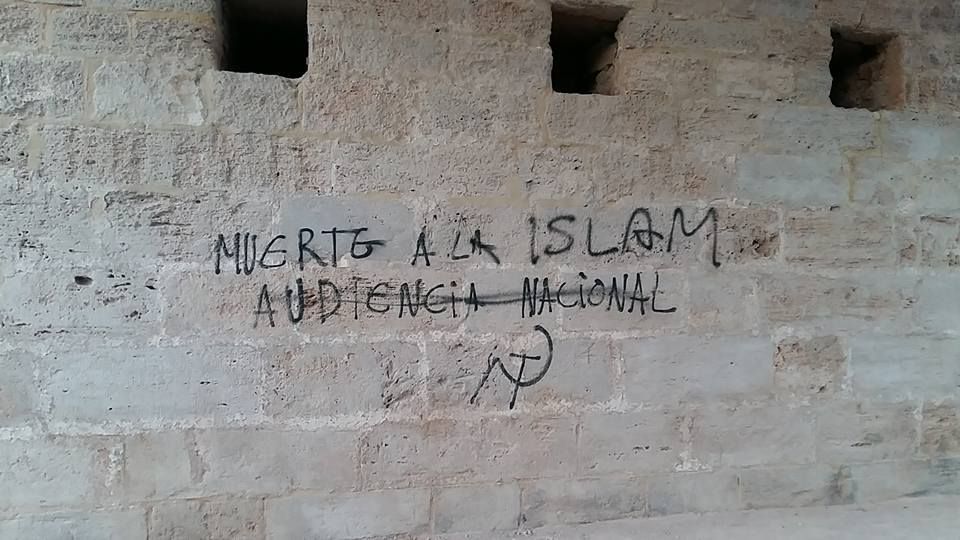 MUERTE A LA ISLAM
AUDIENCIA NACIONAL